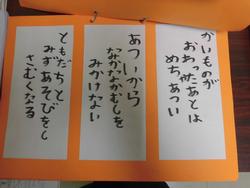 かいものが
おわったあとは
めちゃあつい
あついから
なかなかむしを
みかけない
ともだちと
みずあそびをし
さむくなる